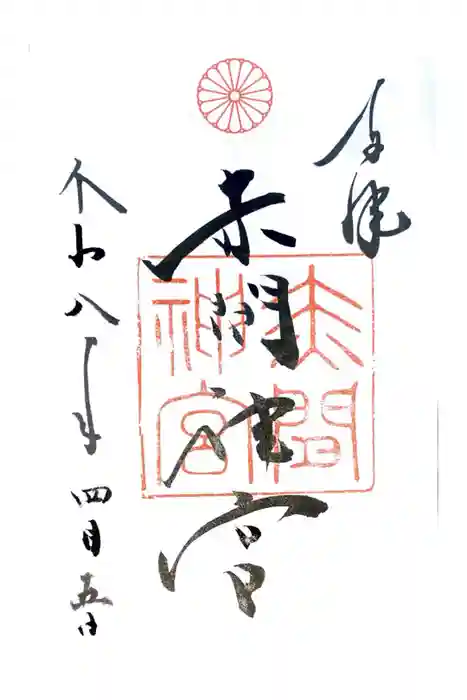 奉拝
赤間神宮
令和八年四月五日
赤間神宮